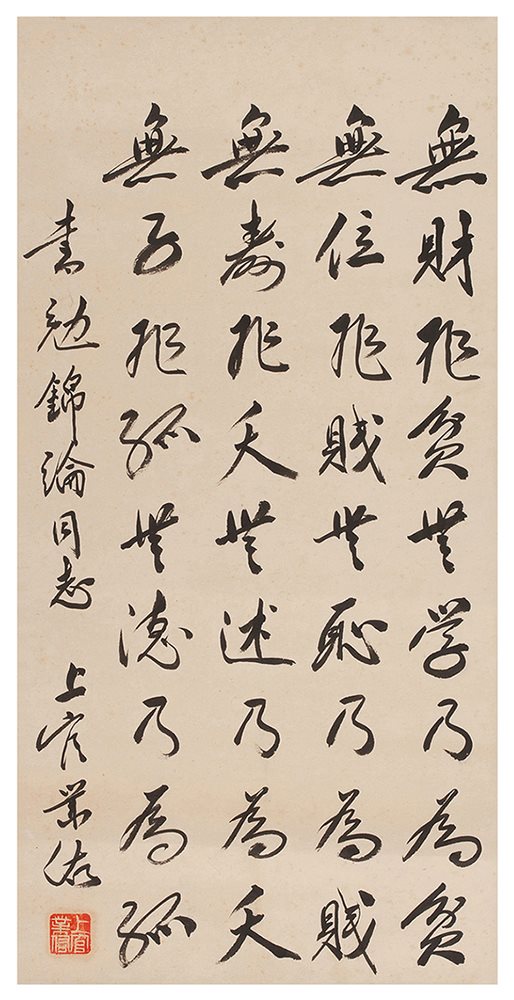 無財非貧無学乃為貧
無位非賤無恥乃為賤
無壽非夭無述乃為夭
無子非孤無德乃為孤
書勉錦綸同志 上官業佑
上官業佑